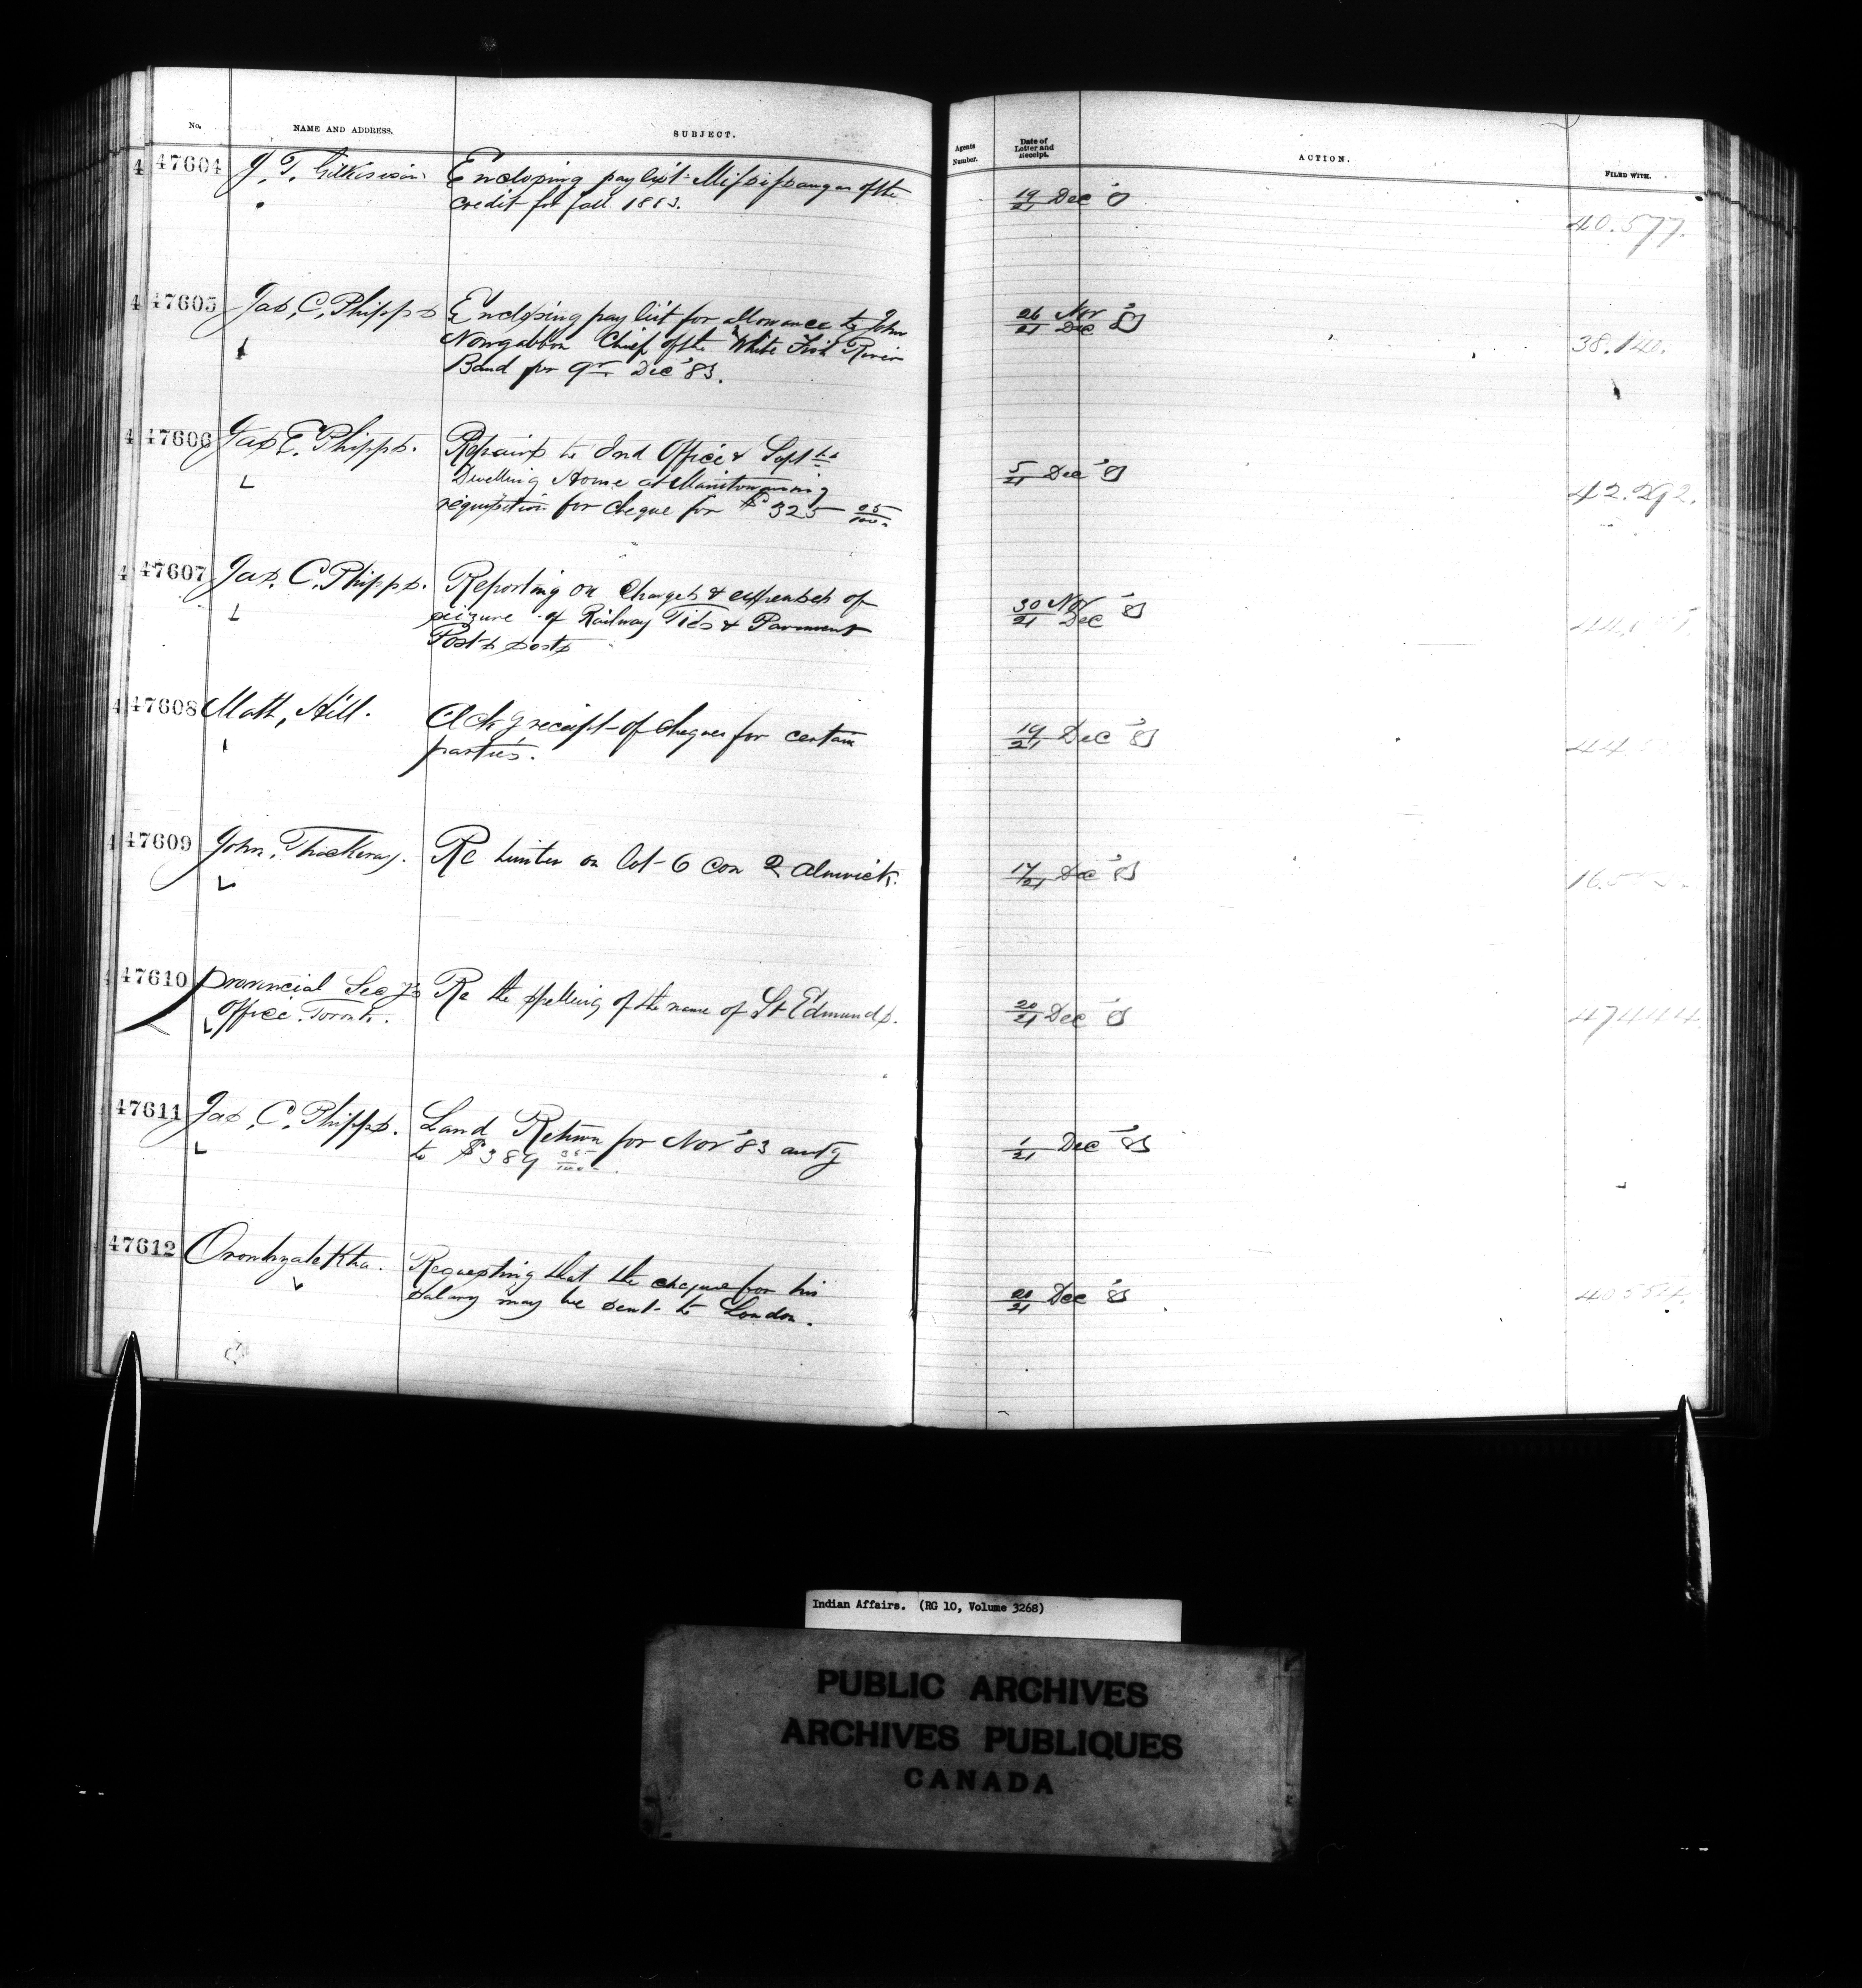 No. NAME AND ADDRESS. SUBJECT. Agents Number. Date of Letter and Receipt. ACTION. FILED WITH.
4 47604 J. T. Gilkison Enclosing pay list Missisaugas of the
credit for fall 1883. 19/21 Dec '83
40.577.
4 47605 Jas, C, Phipps Enclosing pay list for allowance to John
Nowgabbon Chief of the White Fish River
Band for qr Dec '83. 26 Nov / 21 Dec '83
38.140.
4 47606 Jas C. Phipps. Repairs to Ind Office & Supts
Dwelling House at Manitowaning
requisition for cheque for $325 05/100 5/21 Dec '83
42.292.
4 47607 Jas. C. Phipps. Reporting on charges & expenses of
seizure of Railway Ties &
Posts posts 30 Nov / 21 Dec '83
4 47608 Matt, Hill. Ackg receipt of cheques for certain
parties. 19/21 Dec '83
4 47609 John, Thackeray. Re timber on lot 6 Con 2 Alnwick. 17/21 Dec '83
47610 Provincial Secy's Re the spelling of the name of St Edmunds.
Office. Toronto. 20/21 Dec '83
47444
47611 Jas, C. Phipps. Land Return for Nov '83 amtg
to $389 35/100 1/21 Dec '83
47612 Oronhyatekha. Requesting that the cheque for his
salary may be sent to London. 20/21 Dec '83
40554.
Indian Affairs. (RG 10, Volume 3268)
PUBLIC ARCHIVES
ARCHIVES PUBLIQUES
CANADA